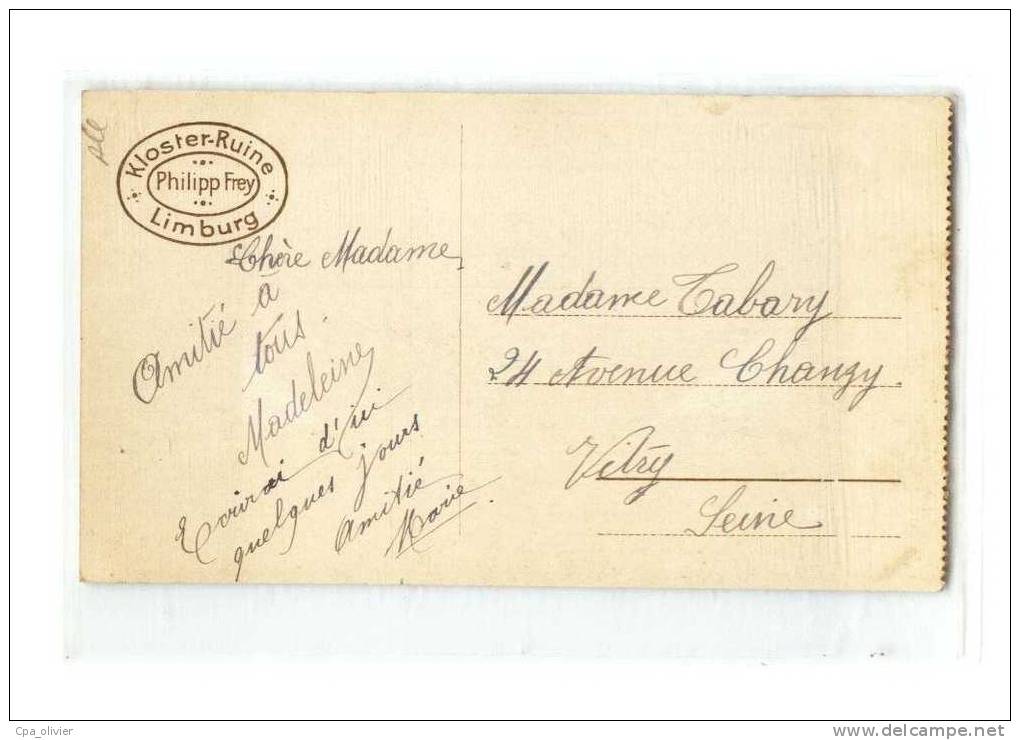 Kloster-Ruine
Philipp Frey
Limburg
Chère Madame
Amitié à
tous.
Madeleine
Ecrirai d'ici
quelques jours
Amitié
Marie.
Madame Tabary
24 Avenue Changy.
Vitry
Seine
Cpa_olivier
delcampe.net